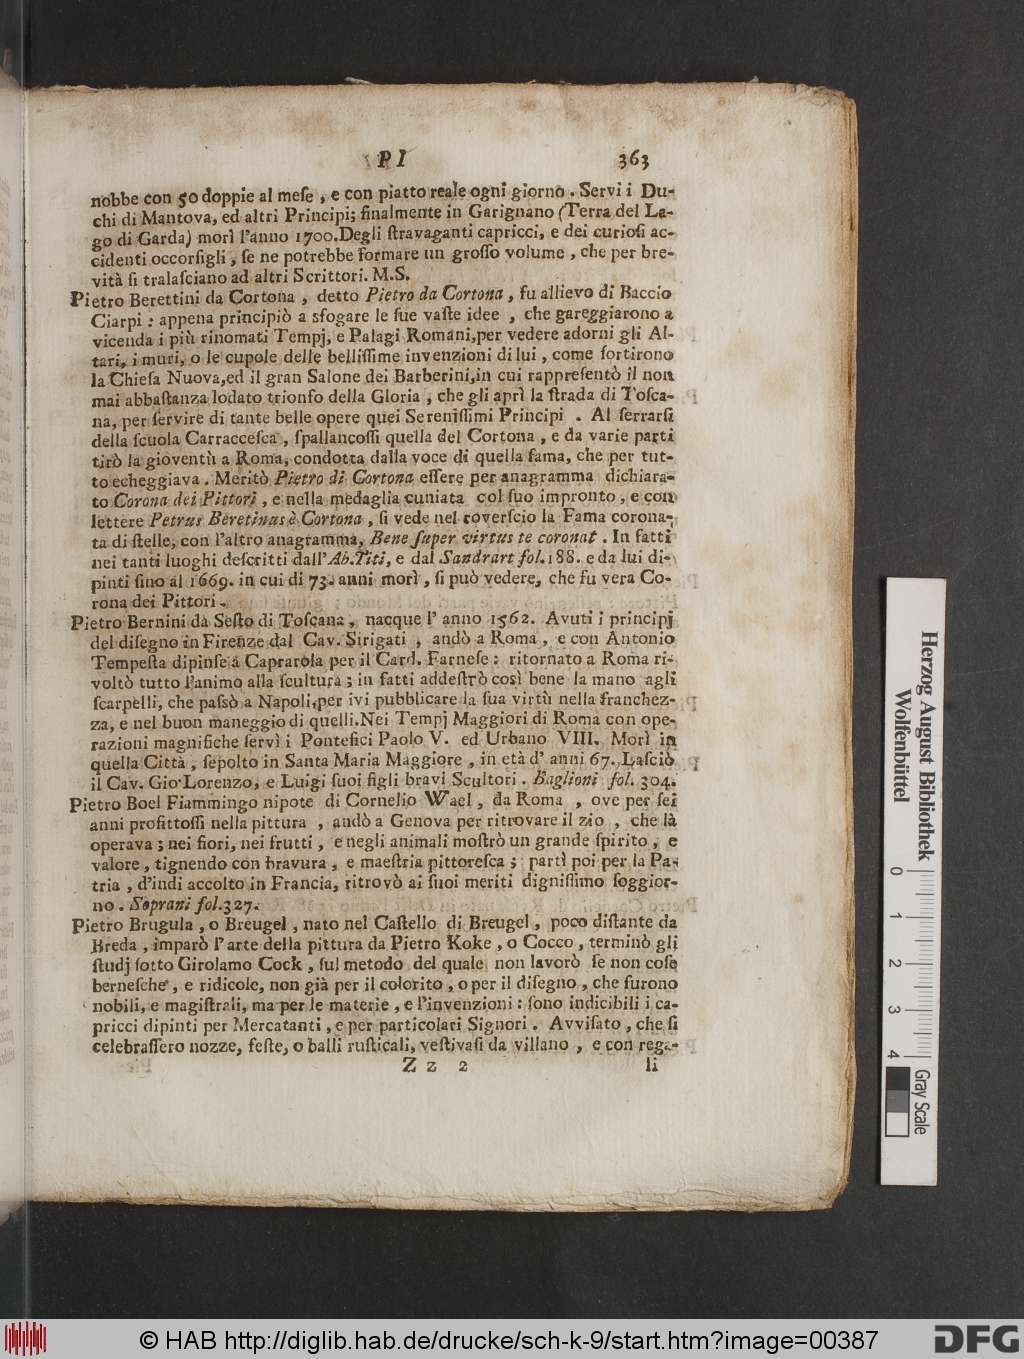 PI 363
nobbe con 50 doppie al meſe , e con piatto reale ogni giorno . Servì i Du-
chi di Mantova, ed altri Principi; finalmente in Garignano (Terra del La-
go di Garda) morì l'anno 1700.Degli ſtravaganti capricci, e dei curioſi ac-
cidenti occorſigli , ſe ne potrebbe formare un groſſo volume , che per bre-
vità ſi tralaſciano ad altri Scrittori. M.S.
Pietro Berettini da Cortona , detto Pietro da Cortona , fu allievo di Baccio
Ciarpi : appena principiò a sfogare le ſue vaſte idee , che gareggiarono a
vicenda i più rinomati Tempj, e Palagi Romani,per vedere adorni gli Al-
tari, i muri, o le cupole delle belliſſime invenzioni di lui , come ſortirono
la Chieſa Nuova,ed il gran Salone dei Barberini,in cui rappreſentò il non
mai abbaſtanza lodato trionfo della Gloria , che gli aprì la ſtrada di Toſca-
na, per ſervire di tante belle opere quei Sereniſſimi Principi . Al ſerrarſi
della ſcuola Carracceſca , ſpallancoſſi quella del Cortona , e da varie parti
tirò la gioventù a Roma, condotta dalla voce di quella fama, che per tut-
to echeggiava . Meritò Pietro di Cortona eſſere per anagramma dichiara-
to Corona dei Pittori , e nella medaglia cuniata col ſuo impronto , e con
lettere Petrus Beretinus è Cortona , ſi vede nel roverſcio la Fama corona-
ta di ſtelle, con l'altro anagramma, Bene ſuper virtus te coronat . In fatti
nei tanti luoghi deſcritti dall' Ab.Titi, e dal Sandrart fol.188. e da lui di-
pinti ſino al 1669. in cui di 73. anni morì , ſi può vedere, che fu vera Co-
rona dei Pittori .
Pietro Bernini da Seſto di Toſcana , nacque l' anno 1562. Avuti i principj
del diſegno in Firenze dal Cav. Sirigati , andò a Roma , e con Antonio
Tempeſta dipinſe à Caprarola per il Card. Farneſe : ritornato a Roma ri-
voltò tutto l'animo alla ſcultura ; in fatti addeſtrò così bene la mano agli
ſcarpelli, che paſsò a Napoli,per ivi pubblicare la ſua virtù nella franchez-
za, e nel buon maneggio di quelli.Nei Tempj Maggiori di Roma con ope-
razioni magnifiche ſervì i Pontefici Paolo V. ed Urbano VIII. Morì in
quella Città , ſepolto in Santa Maria Maggiore , in età d' anni 67. Laſciò
il Cav. Gio:Lorenzo, e Luigi ſuoi figli bravi Scultori . Baglioni fol. 304.
Pietro Boel Fiammingo nipote di Cornelio Wael , da Roma , ove per ſei
anni profittoſſi nella pittura , andò a Genova per ritrovare il zio , che là
operava ; nei fiori, nei frutti , e negli animali moſtrò un grande ſpirito , e
valore , tignendo con bravura , e maeſtria pittoreſca ; partì poi per la Pa-
tria , d'indi accolto in Francia, ritrovò ai ſuoi meriti digniſſimo ſoggior-
no . Soprani fol.327.
Pietro Brugula , o Breugel , nato nel Caſtello di Breugel , poco diſtante da
Breda , imparò l' arte della pittura da Pietro Koke , o Cocco , terminò gli
ſtudj ſotto Girolamo Cock , ſul metodo del quale non lavorò ſe non coſe
berneſche , e ridicole, non già per il colorito , o per il diſegno , che furono
nobili, e magiſtrali, ma per le materie , e l'invenzioni : ſono indicibili i ca-
pricci dipinti per Mercatanti , e per particolari Signori . Avviſato , che ſi
celebraſſero nozze, feſte, o balli ruſticali, veſtivaſi da villano , e con rega-
Z z 2 li
Herzog August Bibliothek
Wolfenbüttel
0 1 2 3 4
Gray Scale
© HAB http://diglib.hab.de/drucke/sch-k-9/start.htm?image=00387
DFG